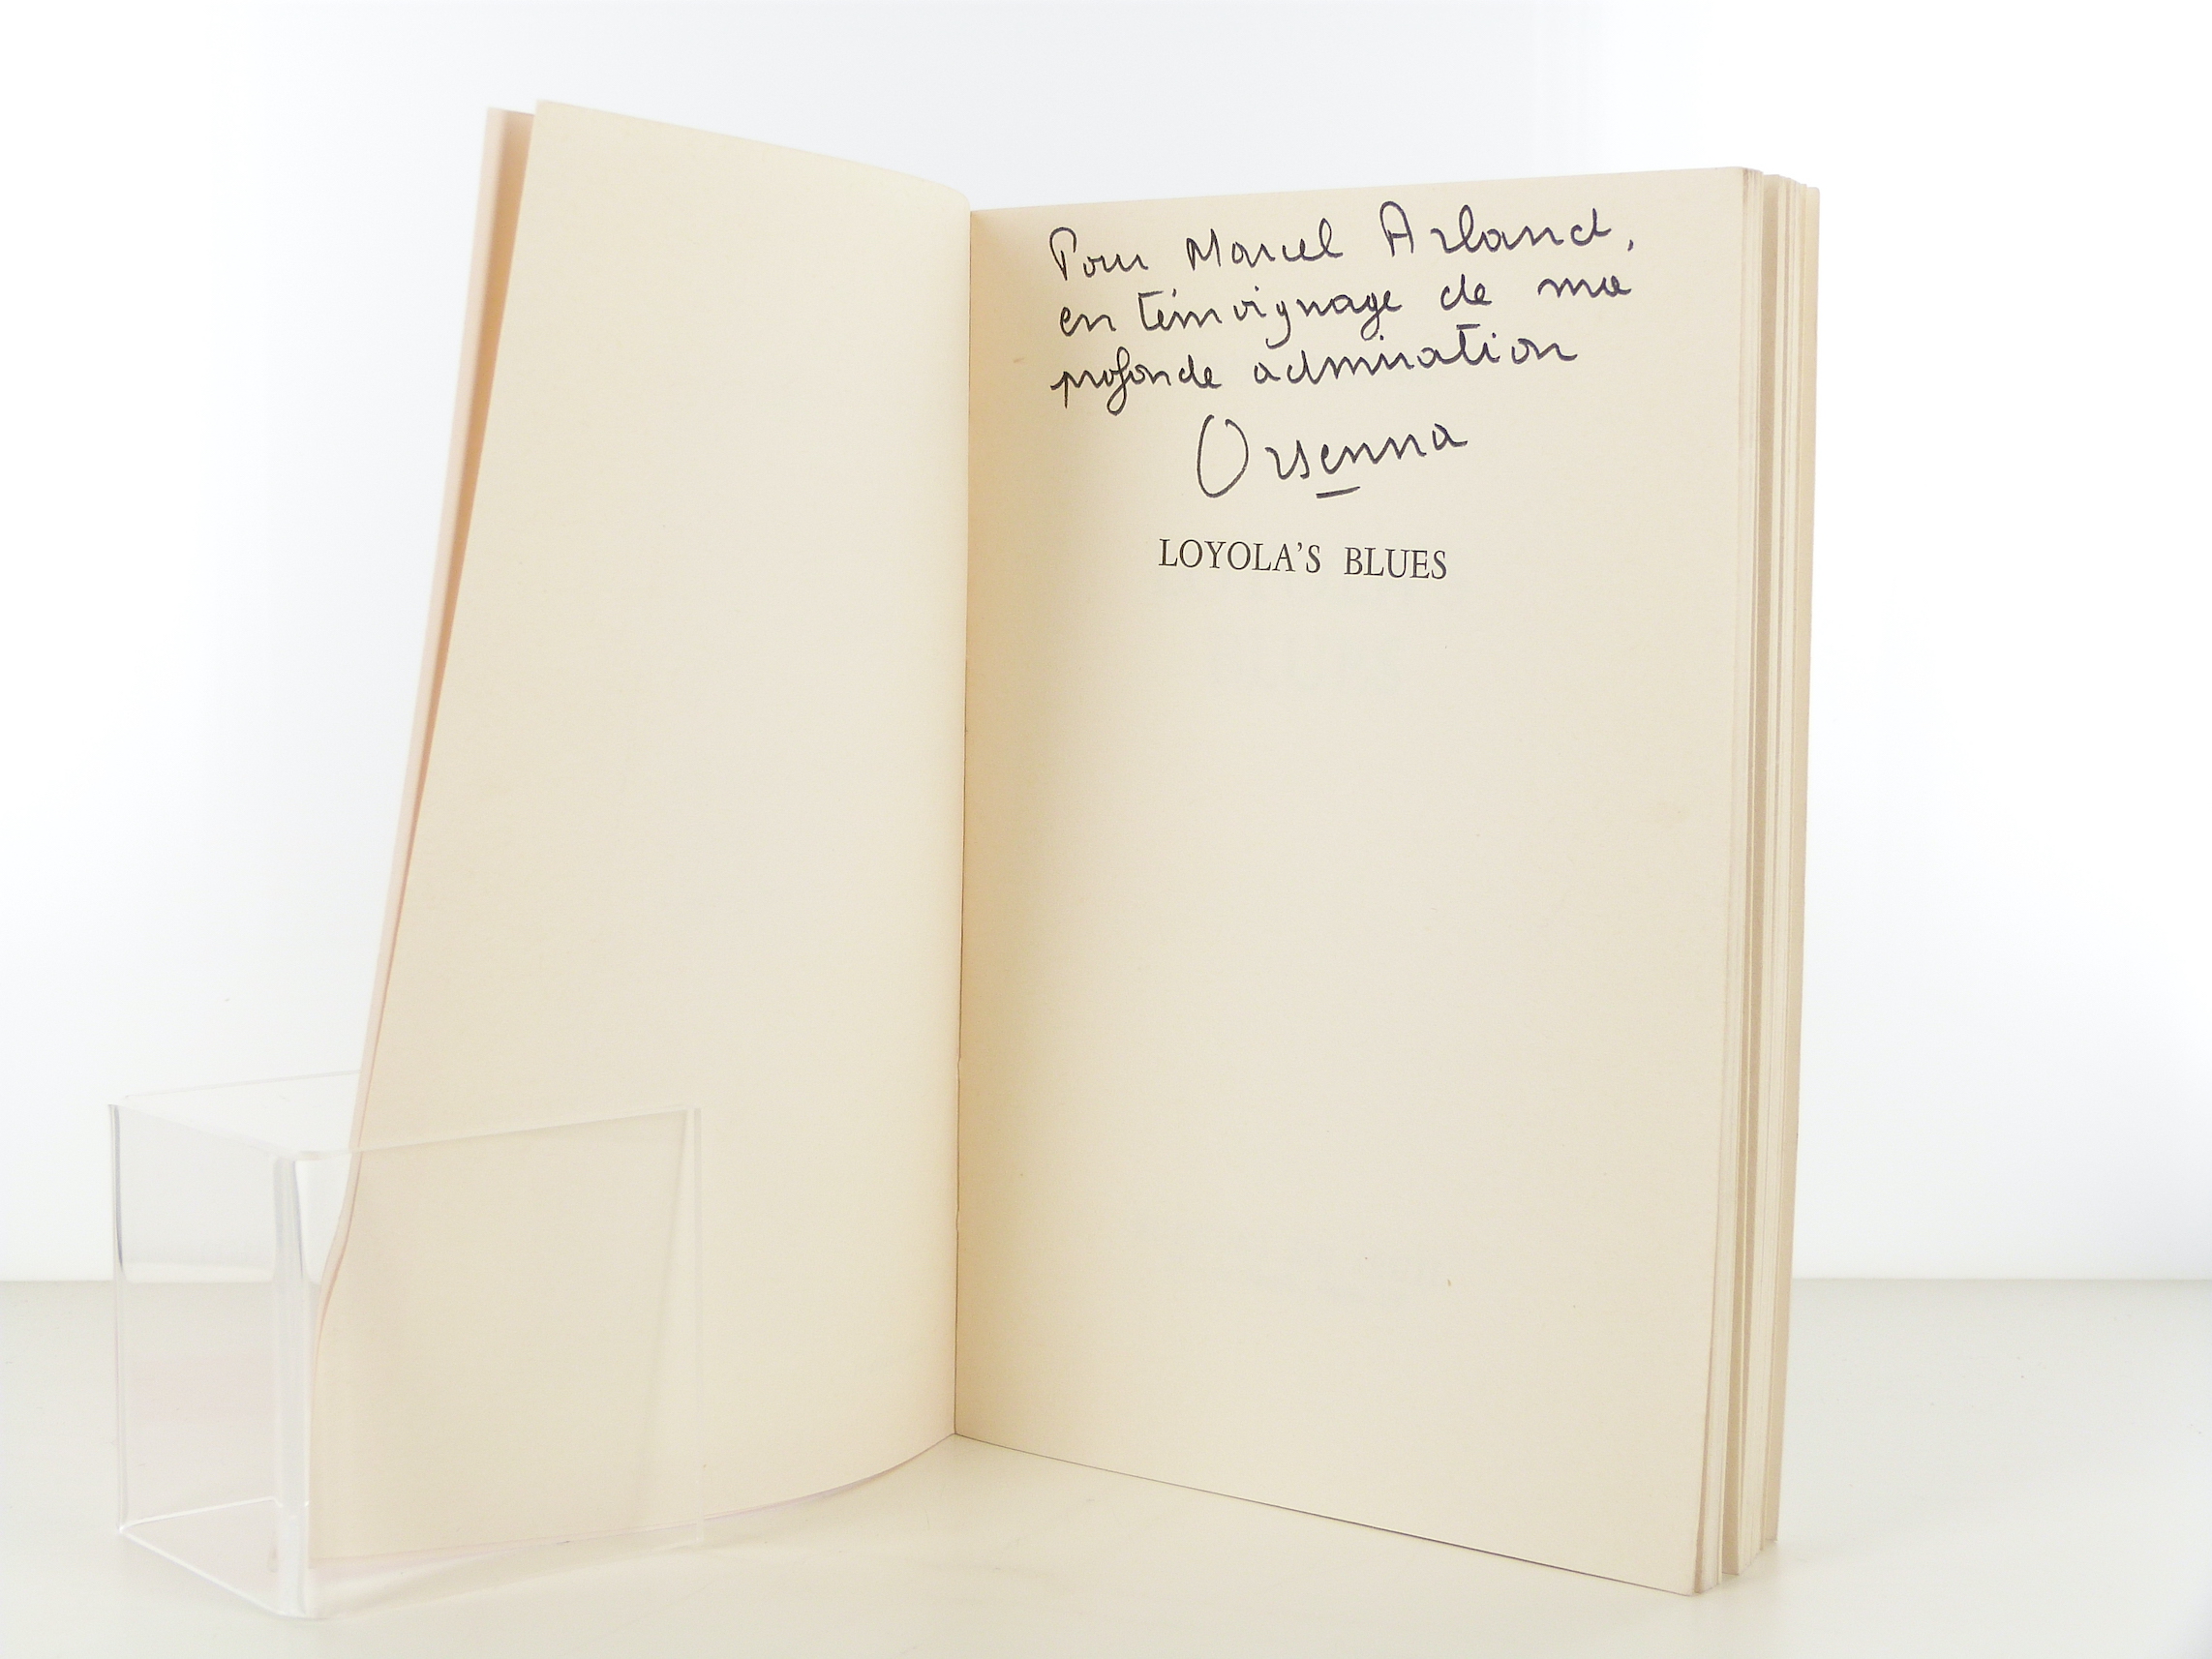 Pour Marcel Arland,
en témoignage de ma
profonde admiration
Orsenna
LOYOLA'S BLUES